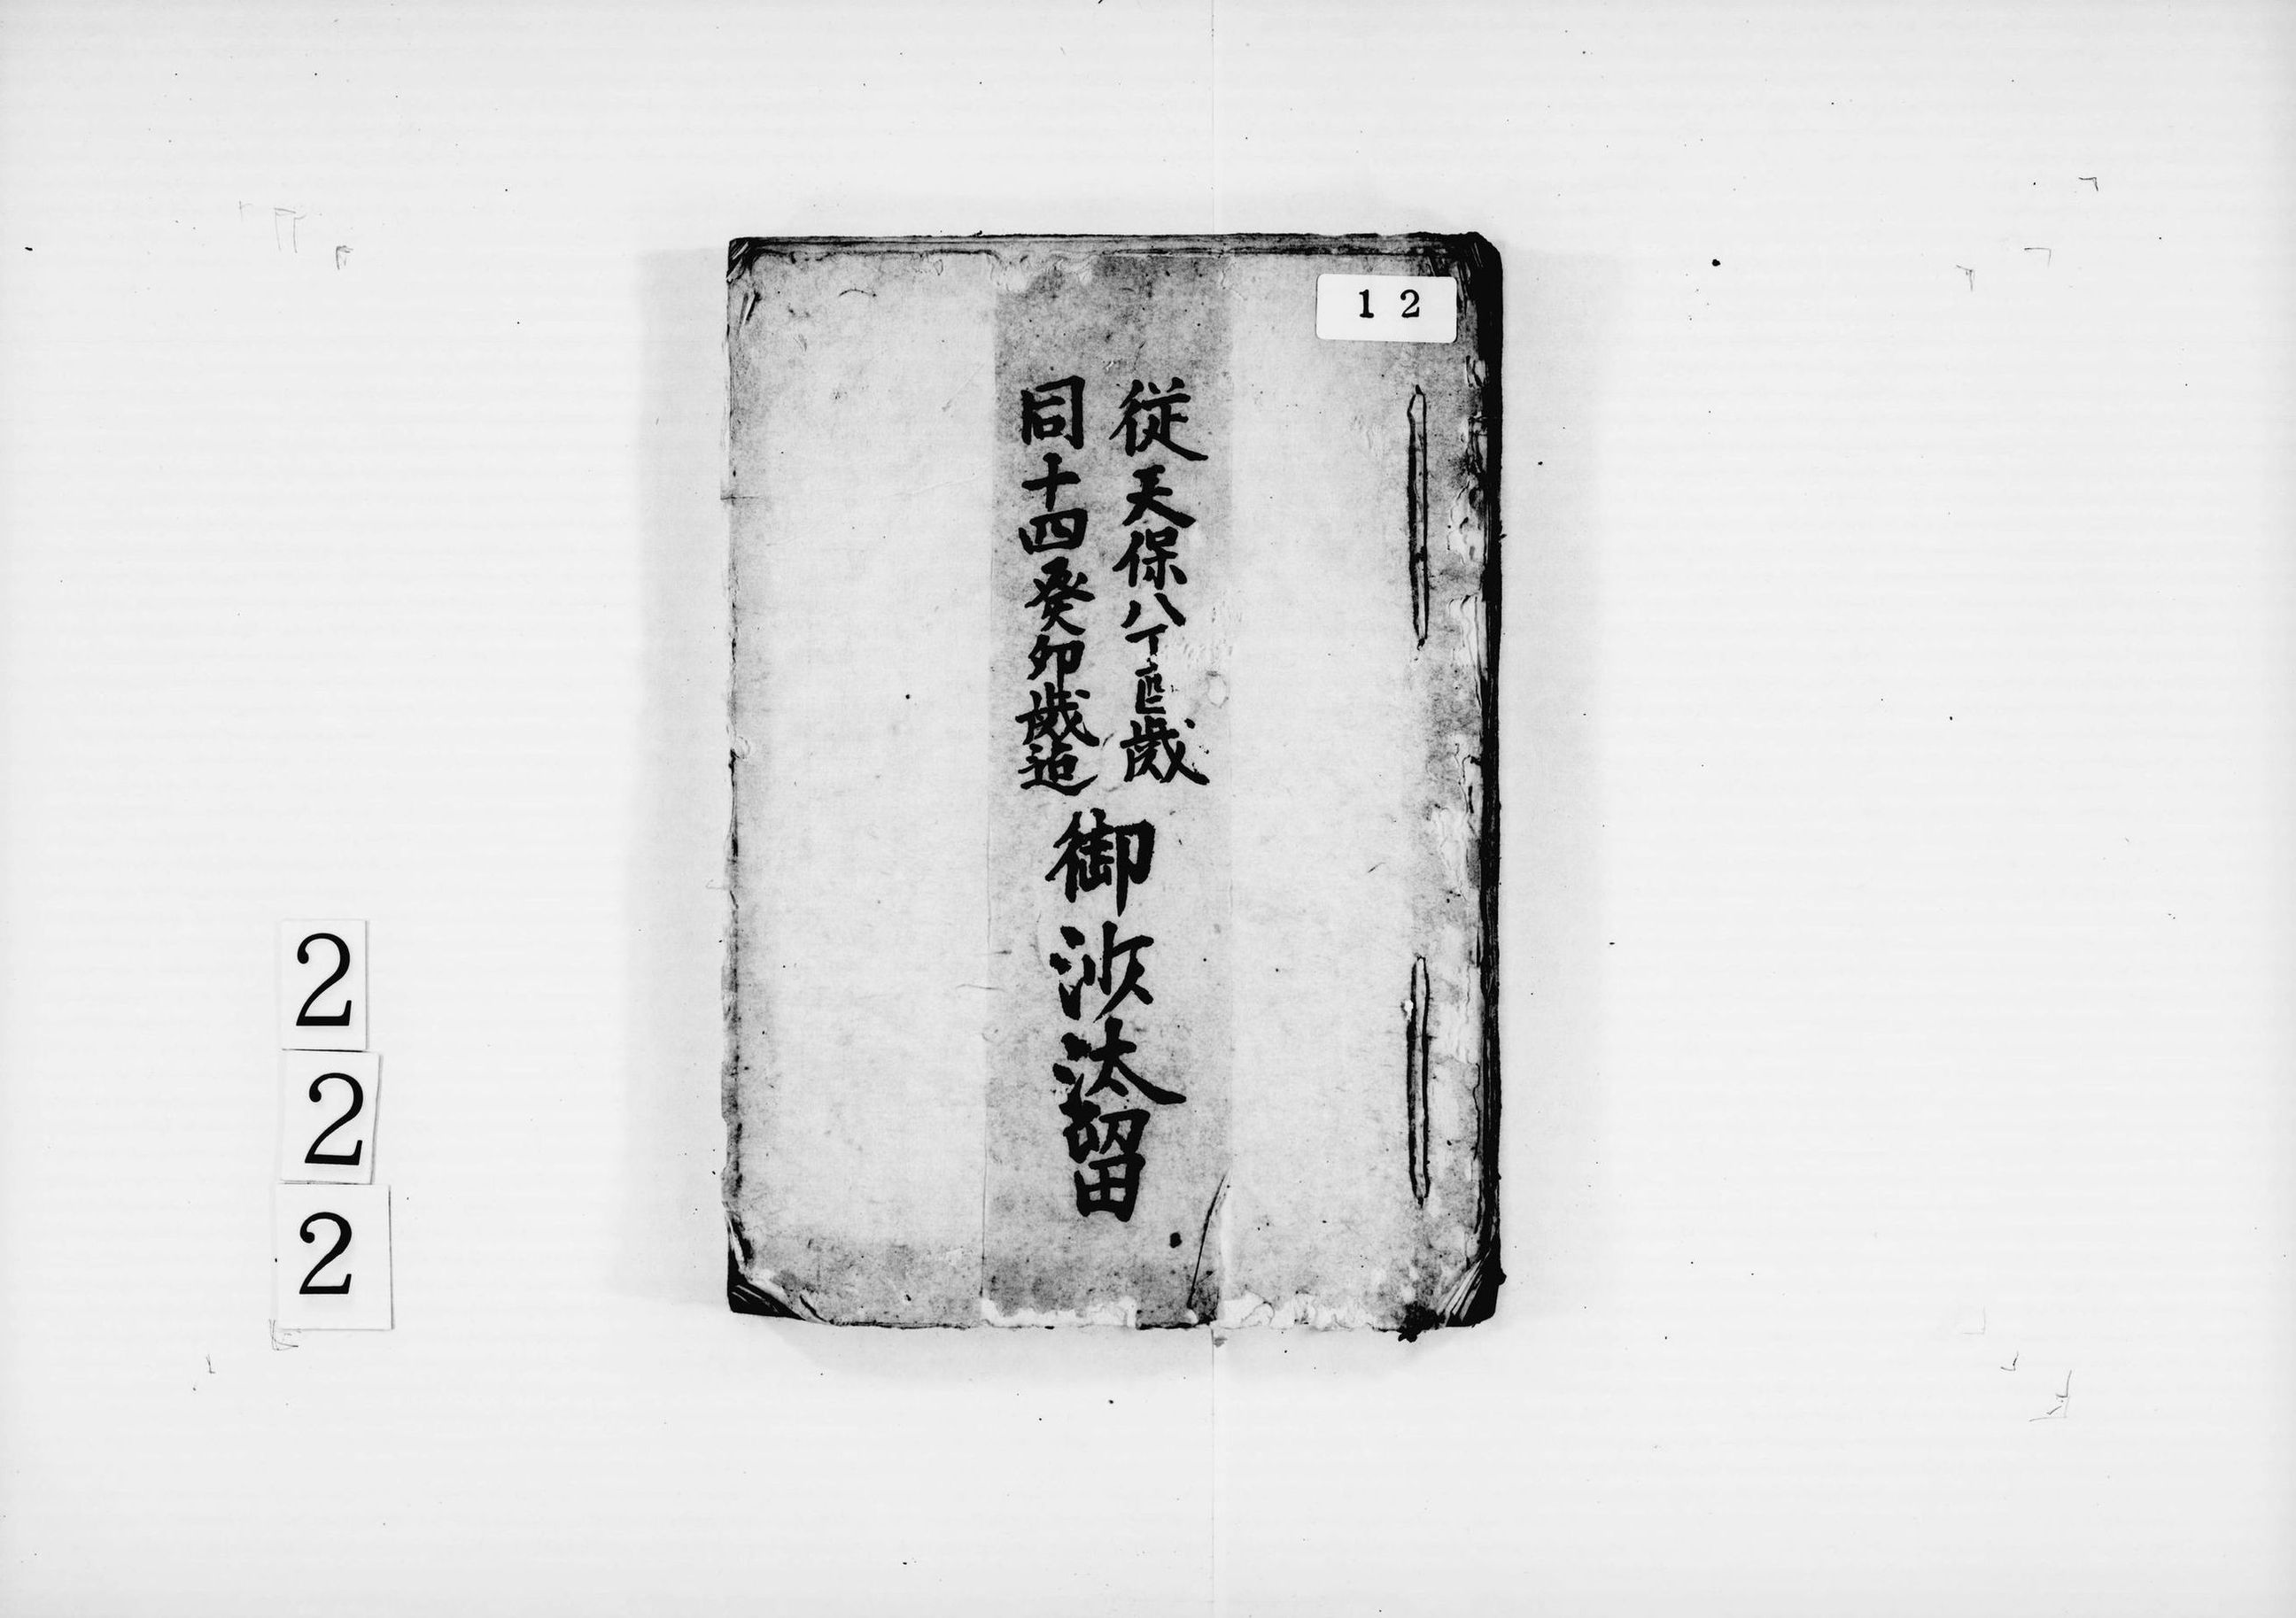 12
従天保八丁酉歳
同十四癸卯歳迄
御沙汰留
2
2
2